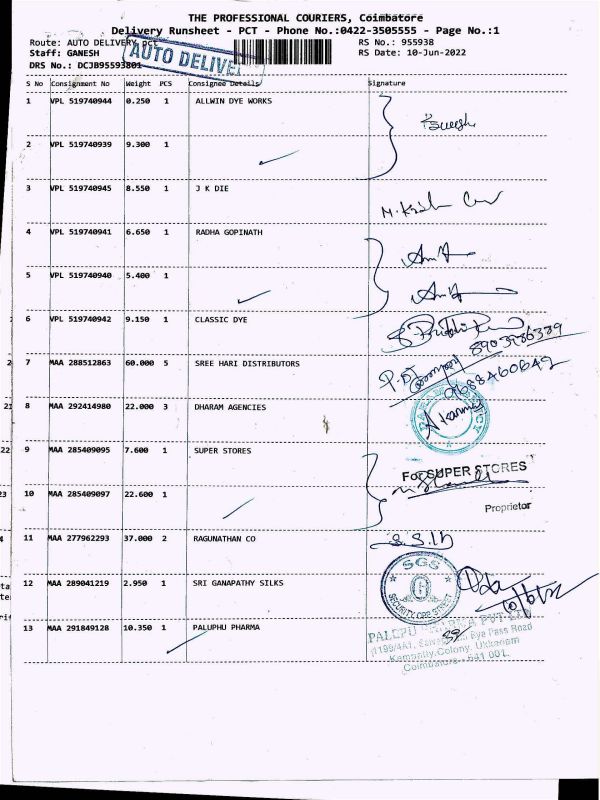 THE PROFESSIONAL COURIERS, Coimbatore
Delivery Runsheet - PCT - Phone No.:0422-3505555 - Page No.:1
Route: AUTO DELIVERY pct RS No.: 955938
Staff: GANESH RS Date: 10-Jun-2022
DRS No.: DCJB95593801
AUTO DELIVE
S No Consignment No Weight PCS Consignee Details Signature
1 VPL 519740944 0.250 1 ALLWIN DYE WORKS
2 VPL 519740939 9.300 1
3 VPL 519740945 8.550 1 J K DIE
4 VPL 519740941 6.650 1 RADHA GOPINATH
5 VPL 519740940 5.400 1
6 VPL 519740942 9.150 1 CLASSIC DYE
8903986339
7 MAA 288512863 60.000 5 SREE HARI DISTRIBUTORS
9688460642
8 MAA 292414980 22.000 3 DHARAM AGENCIES
9 MAA 285409095 7.600 1 SUPER STORES
For SUPER STORES
10 MAA 285409097 22.600 1
Proprietor
11 MAA 277962293 37.000 2 RAGUNATHAN CO
SGS
12 MAA 289041219 2.950 1 SRI GANAPATHY SILKS
13 MAA 291849128 10.350 1 PALUPHU PHARMA
PVT LTD
Bye Pass Road
Colony, Ukkadam
Coimbatore - 641 001.